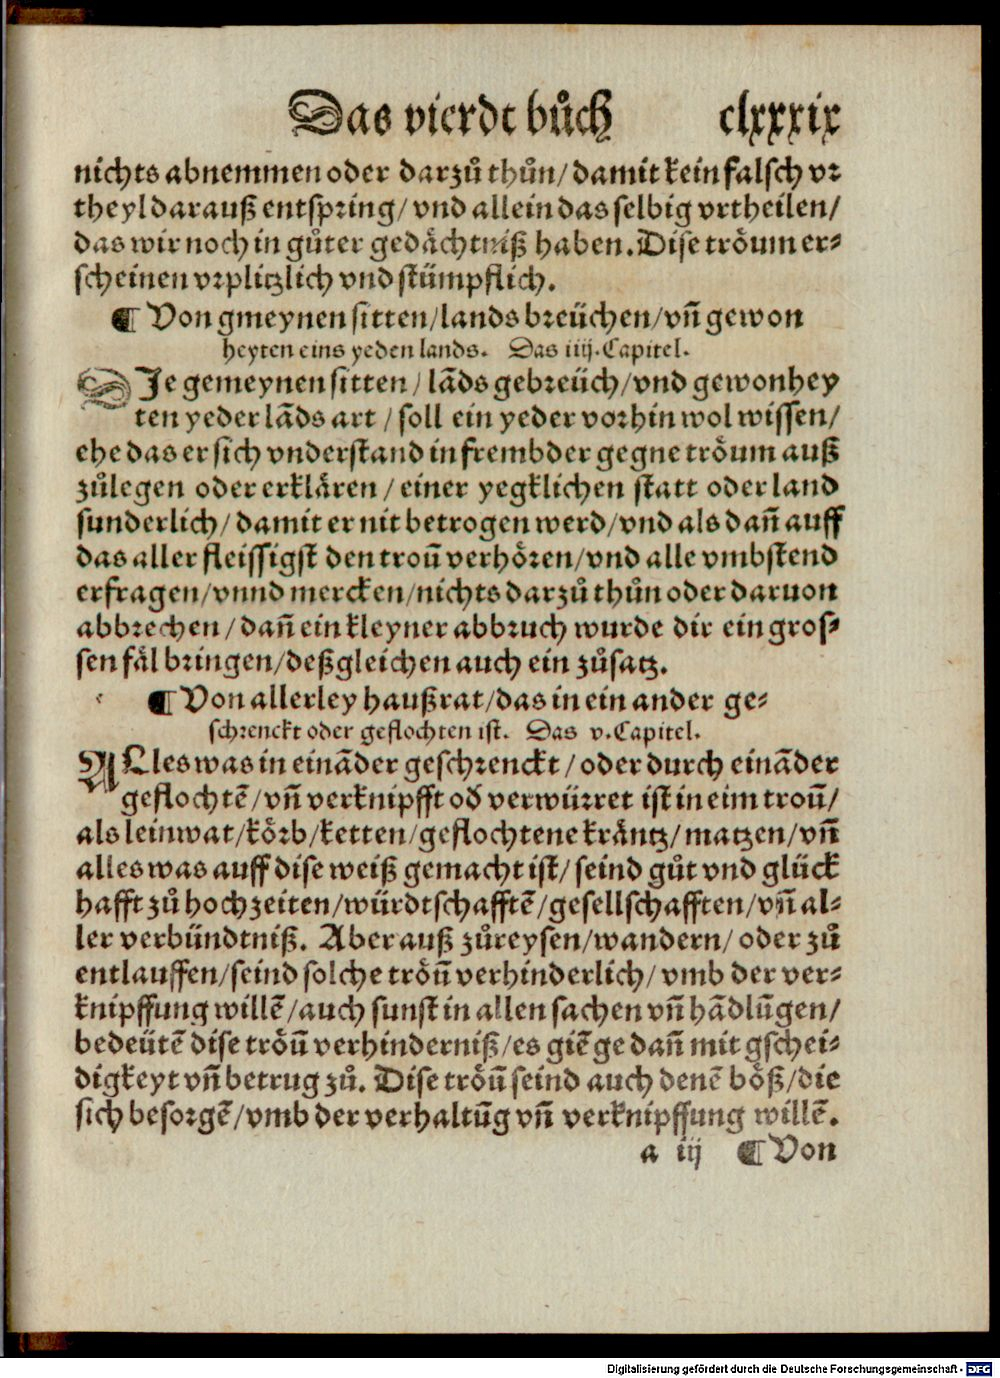 Das vierdt bůch clxxxix
nichts abnemmen oder darzů thůn/ damit kein falsch vr
theyl darauß entspring/ vnd allein das selbig vrtheilen/
das wir noch in gůter gedächtniß haben. Dise tröum er⸗
scheinen vrplitzlich vnd stümpflich.
¶ Von gmeynen sitten/ lands breüchen/ vñ gewon
heyten eins yeden lands. Das iiij. Capitel.
DIe gemeynen sitten/ lãds gebreüch/ vnd gewonhey
ten yeder lãds art/ soll ein yeder vorhin wol wissen/
ehe das er sich vnderstand in frembder gegne tröum auß
zůlegen oder erklären/ einer yegklichen statt oder land
sunderlich/ damit er nit betrogen werd/ vnd als dañ auff
das aller fleissigst den troũ verhören/ vnd alle vmbstend
erfragen/ vnnd mercken/ nichts darzů thůn oder daruon
abbrechen/ dañ ein kleyner abbruch wurde dir ein gros⸗
sen fäl bringen/ deßgleichen auch ein zůsatz.
¶ Von allerley haußrat/ das in ein ander ge⸗
schrenckt oder geflochten ist. Das v. Capitel.
ALles was in einãder geschrenckt/ oder durch einãder
geflochtẽ/ vñ verknipfft oď verwürret ist in eim troũ/
als leinwat/ körb/ ketten/ geflochtene kräntz/ matzen/ vñ
alles was auff dise weiß gemacht ist/ seind gůt vnd glück
hafft zů hochzeiten/ würdtschafftẽ/ gesellschafften/ vñ al⸗
ler verbündtniß. Aber auß zůreysen/ wandern/ oder zů
entlauffen/ seind solche tröũ verhinderlich/ vmb der ver⸗
knipffung willẽ/ auch sunst in allen sachen vñ hãdlũgen/
bedeütẽ dise tröũ verhinderniß/ es giẽge dañ mit gschei⸗
digkeyt vñ betrug zů. Dise tröũ seind auch denẽ böß/ die
sich besorgẽ/ vmb der verhaltũg vñ verknipffung willẽ.
a iij ¶ Von
Digitalisierung gefördert durch die Deutsche Forschungsgemeinschaft - DFG